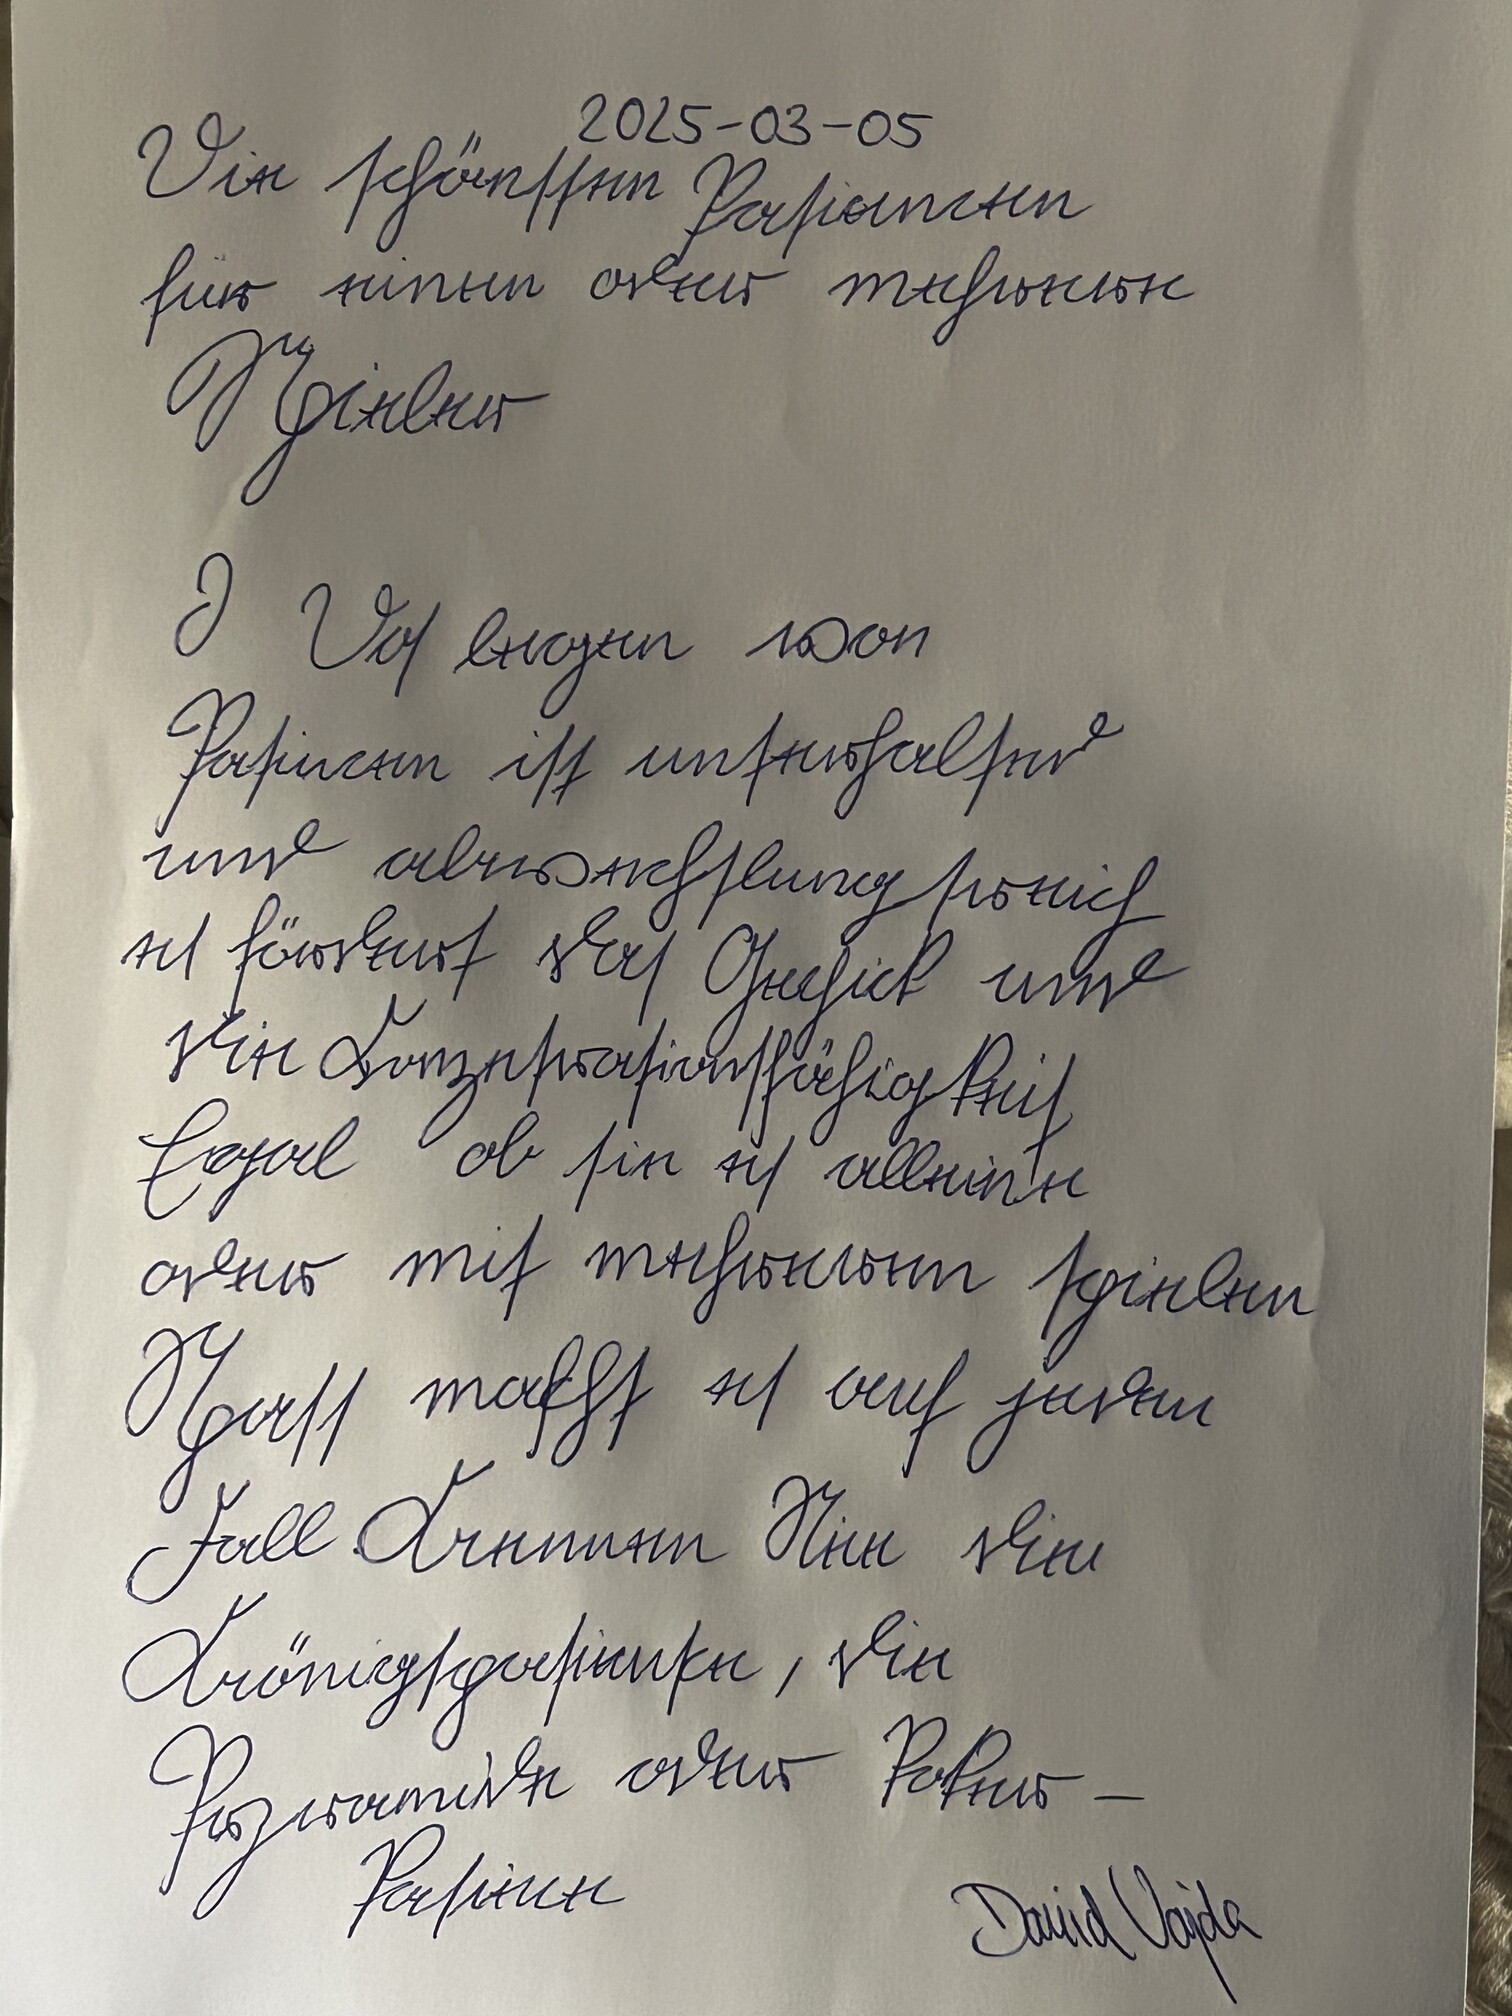 2025-03-05
Die schönsten Patiencen
für einen oder mehrere
Spieler
I Das legen von
Patiencen ist unterhaltend
und abwechslungsreich
es fördert das Geschick und
die Konzentrationsfähigkeit
Egal ob sie es alleine
oder mit mehreren spielen
Spass macht es auf jeden
Fall. Kennen Sie die
Königspatience, die
Pyramide oder Poker-
Patience
David Vajda